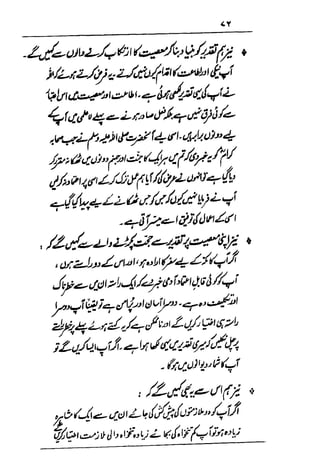 ۷۲
* نیز ہم تقدیر کو بنیاد بنا کر معصیت کا ارتکاب کرنے والوں سے کہیں گے۔
آپ نیکی اور اطاعت کا اقدام کیوں نہیں کرتے یہ فرض کرتے ہوئے کہ اللہ
نے آپ کی یہی تقدیر لکھی ہوئی ہے۔ اطاعت اور معصیت میں اس اعتبار
سے کوئی فرق نہیں ہے بلکہ فعل صادر ہونے سے پہلے لاعلمی میں آپ کے
لیے دونوں برابر ہیں۔ اسی لیے آنحضرت صلی اللہ علیہ وسلم نے جب صحابہ
کرام کو یہ خبر دی کہ تم میں ہر ایک کا جنت اور جہنم دونوں میں ٹھکانہ مقرر کر
دیا گیا ہے تو انہوں نے عرض کی کہ آیا ہم عمل ترک کر کے اسی پر اعتماد نہ کر لیں
آپ نے فرمایا نہیں کیوں کہ جس کو جس ٹھکانے کے لیے پیدا کیا گیا ہے
اسی کے اعمال کی توفیق اسے میسر آتی ہے۔
* نیز اپنی معصیت پر تقدیر سے حجت پکڑنے والے سے کہیں گے کہ :
اگر آپ کا مکہ کے لیے سفر کا ارادہ ہو، اور اس کے دو راستے ہوں ،
آپ کو کوئی قابل اعتماد آدمی خبر دے کہ ایک راستہ ان میں سے خطرناک
اور تکلیف دہ ہے۔ دوسرا آسان اور پُرامن ہے تو یقیناً آپ دوسرا
راستہ ہی اختیار کریں گے اور ناممکن ہے کہ یہ کہتے ہوئے پہلے پر خطر راستے
پر چل نکلیں کہ میری تقدیر میں یہی لکھا ہوا ہے۔ اگر آپ ایسا کریں گے تو
آپ کا شمار دیوانوں میں ہو گا۔
* نیز ہم اس سے یہ بھی کہیں گے کہ :
اگر آپ کو دو ملازمتوں کی پیش کش کی جائے ان میں سے ایک کا مشاہرہ
زیادہ ہو تو آپ کم تنخواہ کی بجائے زیادہ تنخواہ والی ملازمت اختیار کریں گے